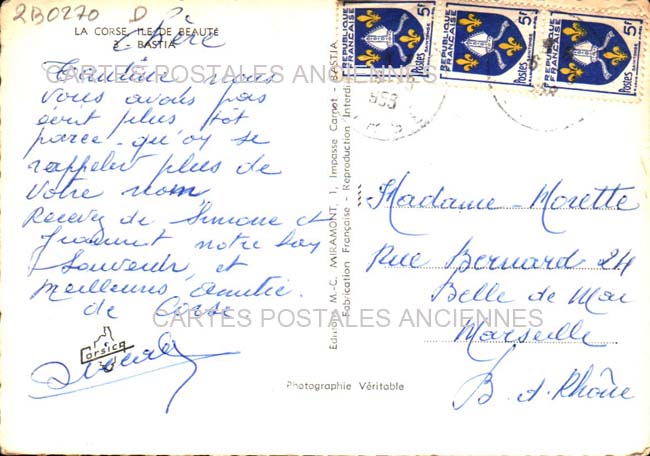 2B0270 D
LA CORSE, ILE DE BEAUTÉ
2 - BASTIA
CARTES POSTALES ANCIENNES
nous
vous avons pas
écrit plus tot
parce-qu'on se
rappeler plus de
Votre nom,
Recevez de Simone et
notre bon
Souvenir et
Meilleures Amitié.
de Corse
Corsica
Edition M.-C. MIRAMONT, 1, Impasse Carnot - BASTIA
Fabrication Française - Reproduction Interdite
RÉPUBLIQUE FRANÇAISE
5F
POSTES
RÉPUBLIQUE FRANÇAISE
5F
POSTES
RÉPUBLIQUE FRANÇAISE
5F
POSTES
Madame Morette
Rue Bernard 24
Belle de Mai
Marseille
B. d. Rhône
CARTES POSTALES ANCIENNES
Photographie Véritable